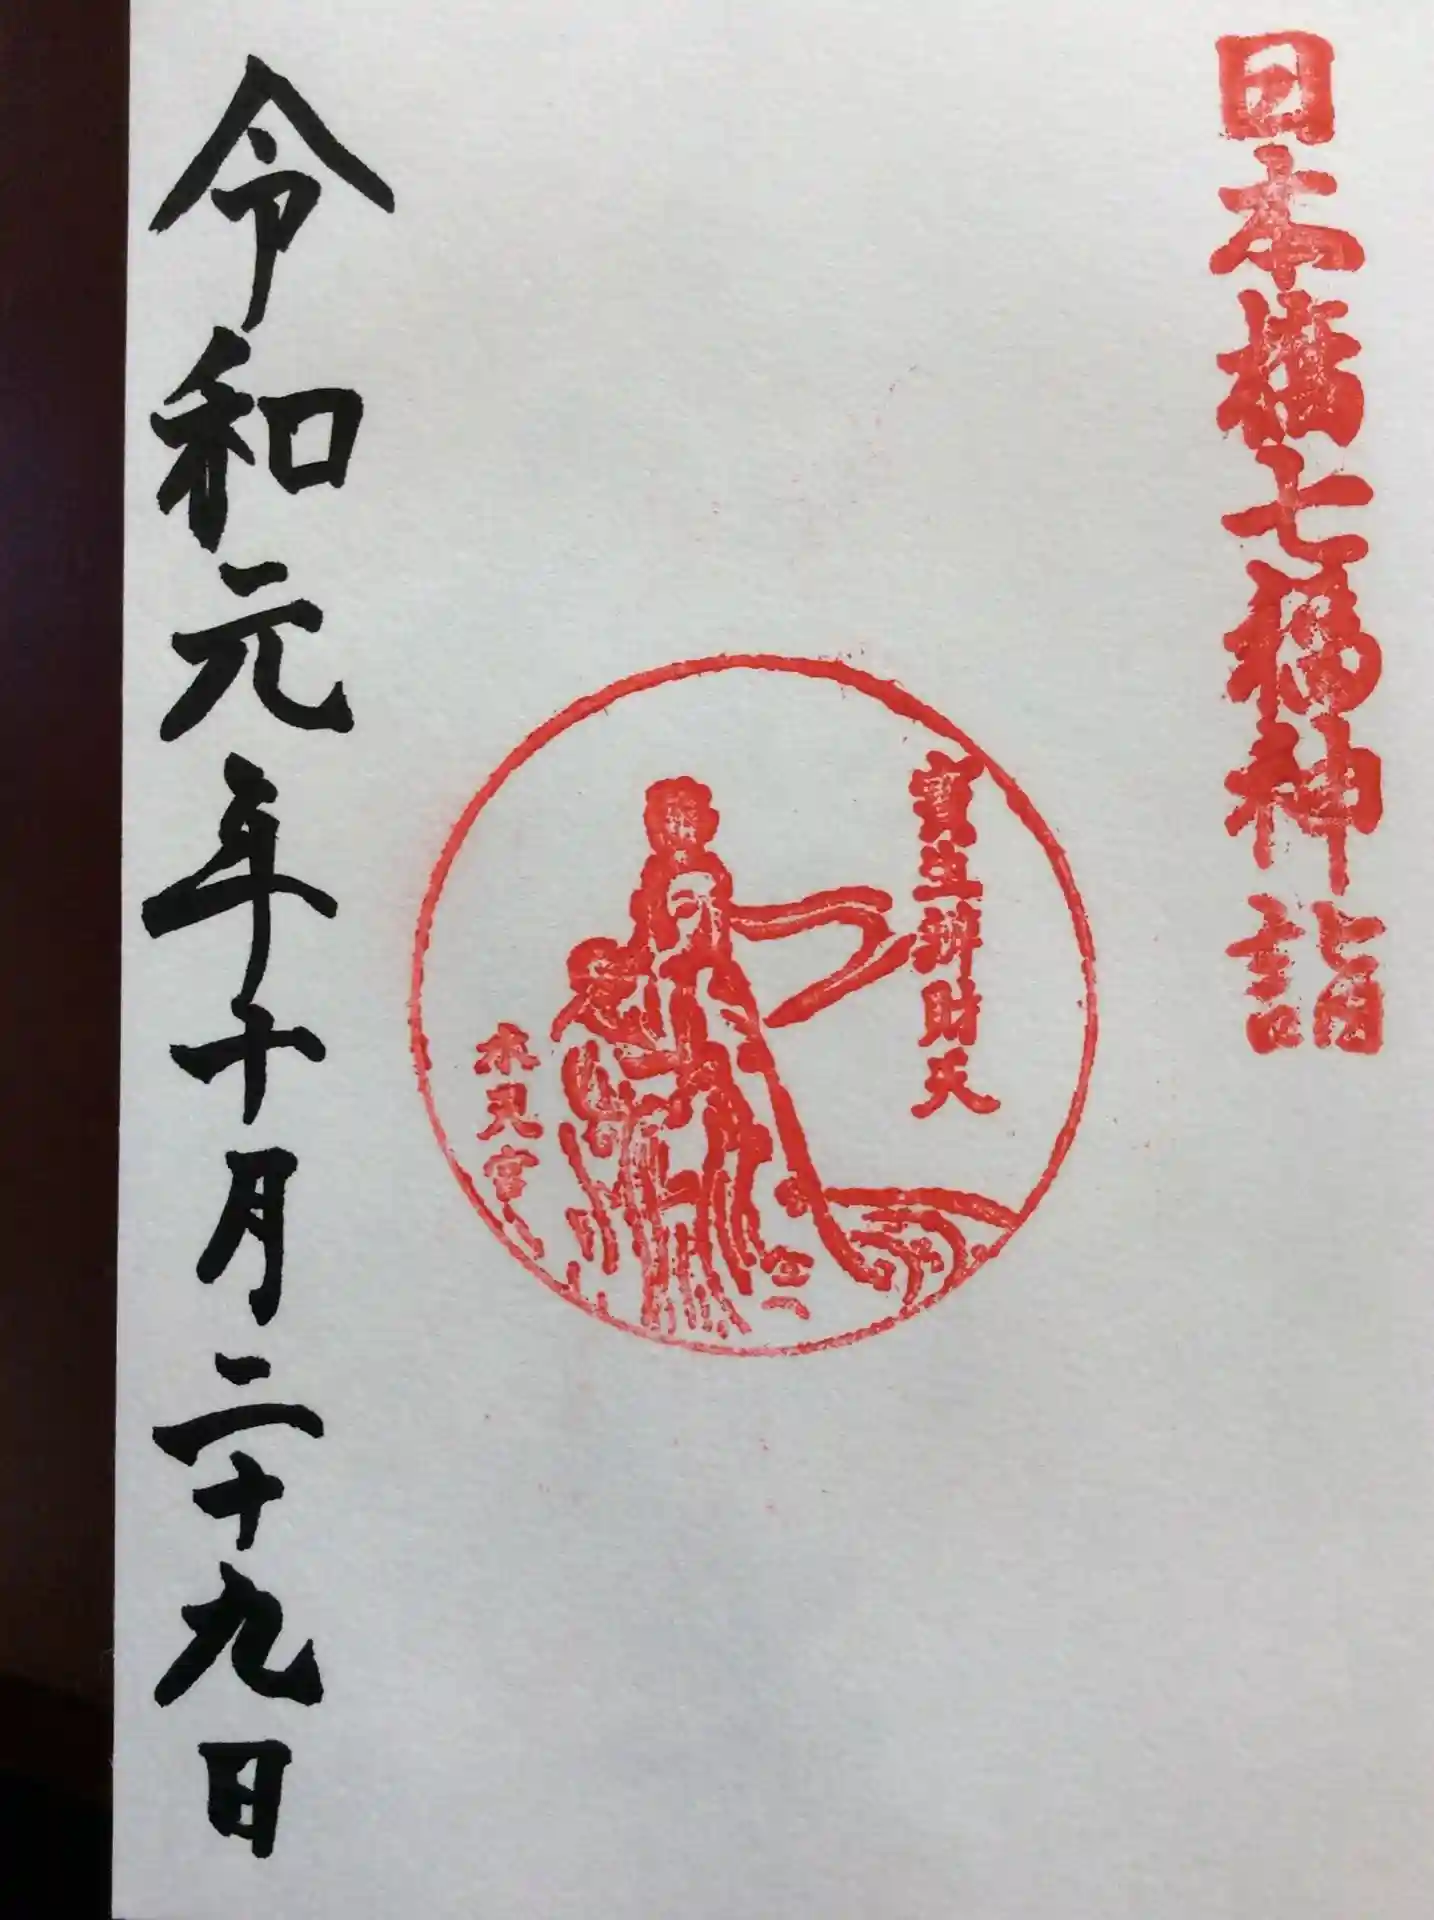 日本橋七福神詣
寶生辨財天
水天宮
令和元年十月二十九日